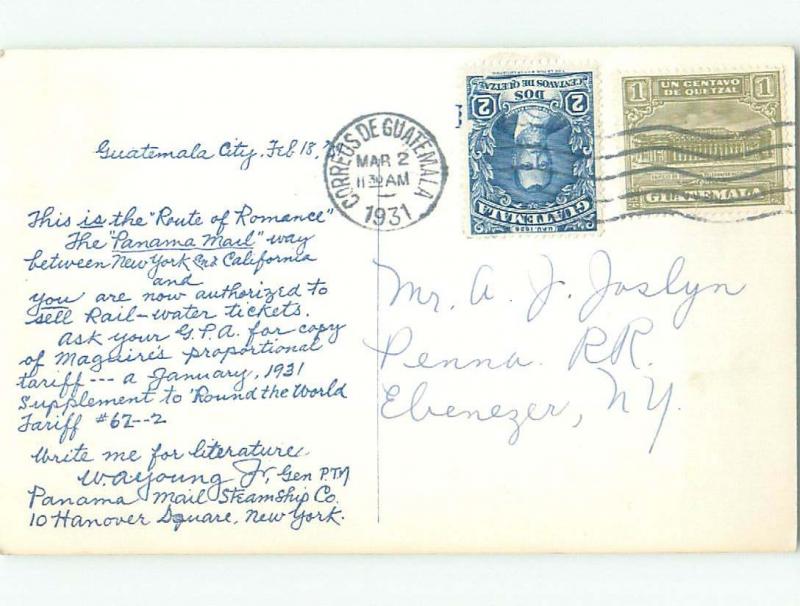 Guatemala City, Feb 18,
This is the "Route of Romance"
The "Panama Mail" way
between New York and California
and
you are now authorized to
sell Rail-water tickets.
Ask your G.P.A. for copy
of Maguire's proportional
tariff --- a January, 1931
Supplement to 'Round the World
Tariff #62--2
Write me for literature.
W.A. Young Jr, Gen P.TM
Panama Mail Steamship Co.
10 Hanover Square, New York.
CORREOS DE GUATEMALA
MAR 2
11 30 AM
1931
2 DOS 2
CENTAVOS DE QUETZAL
GUATEMALA
1 UN CENTAVO 1
DE QUETZAL
GUATEMALA
Mr. A. J. Joslyn
Penna. RR.
Ebenezer, NY.